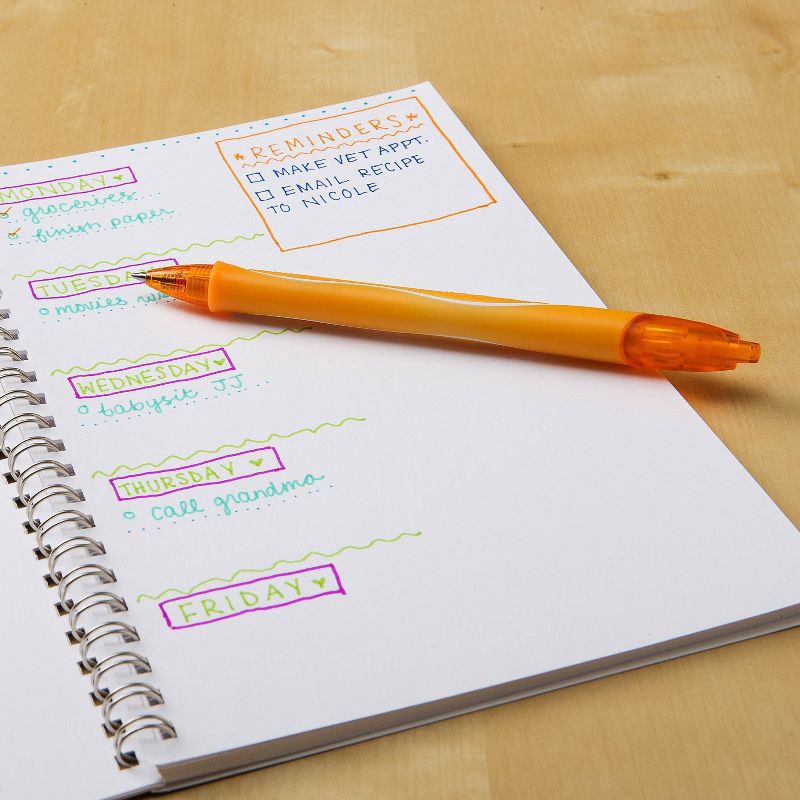 MONDAY
groceries
finish paper
TUESDAY
movies
WEDNESDAY
babysit JJ
THURSDAY
call grandma
FRIDAY
REMINDERS
MAKE VET APPT.
EMAIL RECIPE
TO NICOLE